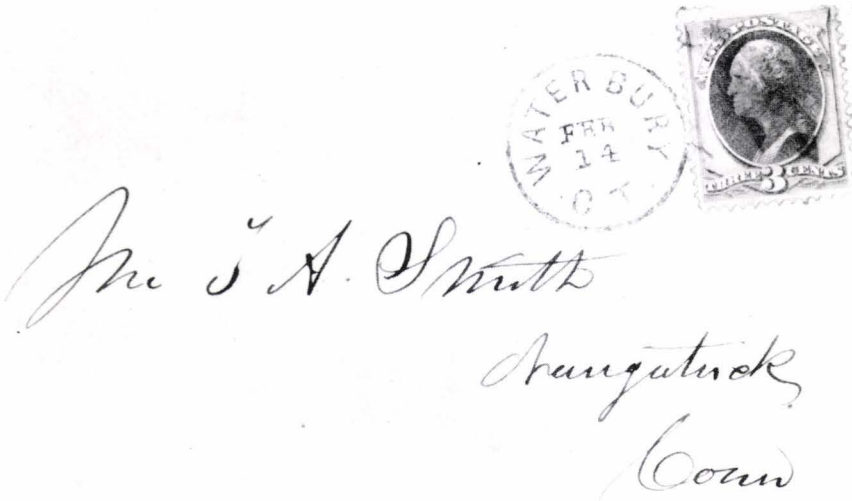 U.S. POSTAGE
THREE 3 CENTS
WATERBURY
FEB
14
CT.
Mr. T A. Smith
Naugatuck
Conn